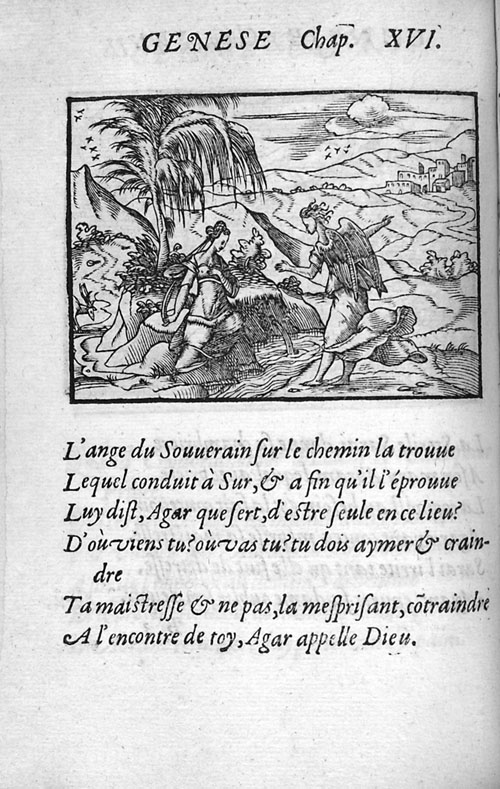 GENESE Chap. XVI.
L'ange du Souuerain sur le chemin la trouue
Lequel conduit à Sur, & a fin qu'il l'éprouue
Luy dist, Agar que sert, d'estre seule en ce lieu?
D'où viens tu? où vas tu? tu dois aymer & crain-
dre
Ta maistresse & ne pas, la mesprisant, cõtraindre
A l'encontre de toy, Agar appelle Dieu.